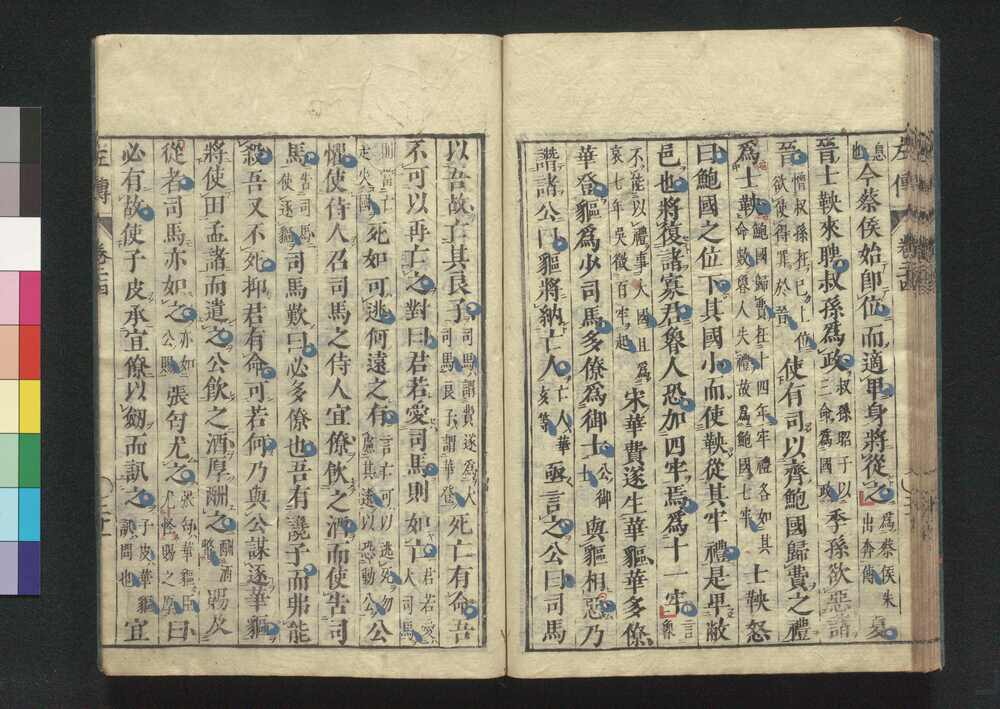 左傳 卷二十四
息也今蔡侯始卽位而適卑身將從之為蔡侯朱出奔傳夏
晉士鞅來聘叔孫爲政叔孫昭子以三命爲國政季孫欲惡諸
晉憎叔孫在已上位欲使得罪於晉使有司以齊鮑國歸費之禮
爲士鞅鮑國歸費在十四年牢禮各如其命數魯人失禮故爲鮑國七牢士鞅怒
曰鮑國之位下其國小而使鞅從其牢禮是卑敝
邑也將復諸寡君魯人恐加四牢焉爲十一牢言魯
不能以禮事大國且爲哀七年吳徵百牢起宋華費遂生華貙華多僚
華登貙爲少司馬多僚爲御士公御士與貙相惡乃
譖諸公曰貙將納亡人亡人華亥等亟言之公曰司馬
以吾故亡其良子司馬謂費遂爲大司馬良子謂華登死亡有命吾
不可以再亡之對曰君若愛司馬則如亡君若愛大司馬
則當亡走失國死如可逃何遠之有言亡可以逃死勿慮其遠以恐動公公
懼使侍人召司馬之侍人宜僚飲之酒而使告司
馬告司馬使逐貙司馬歎曰必多僚也吾有讒子而弗能
殺吾又不死抑君有命可若何乃與公謀逐華貙
將使田孟諸而遣之公飲之酒厚酬之酬酒幣賜及
從者司馬亦如之亦如公賜張匄尤之張匄華貙臣尤怪賜之厚曰
必有故使子皮承宜僚以劔而訊之子皮華貙訊問也宜
左傳 卷二十四